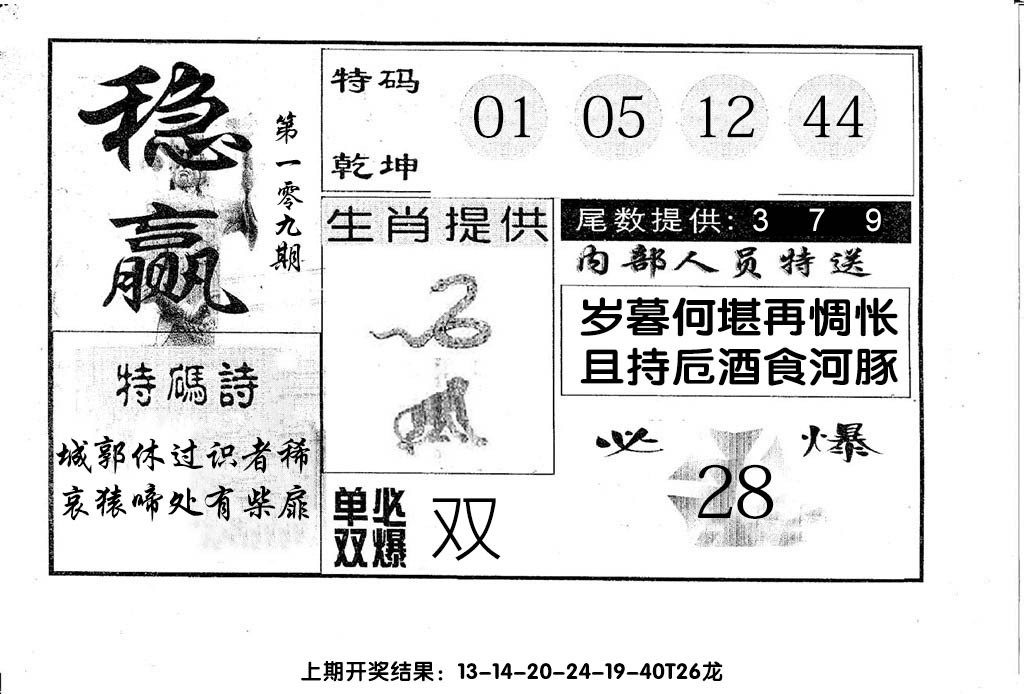 稳赢
第一零九期
特码
乾坤
01 05 12 44
生肖提供
尾数提供: 3 7 9
内部人员特送
岁暮何堪再惆怅
且持卮酒食河豚
特碼詩
城郭休过识者稀
哀猿啼处有柴扉
单双
必爆
双
必爆
28
上期开奖结果：13-14-20-24-19-40T26龙